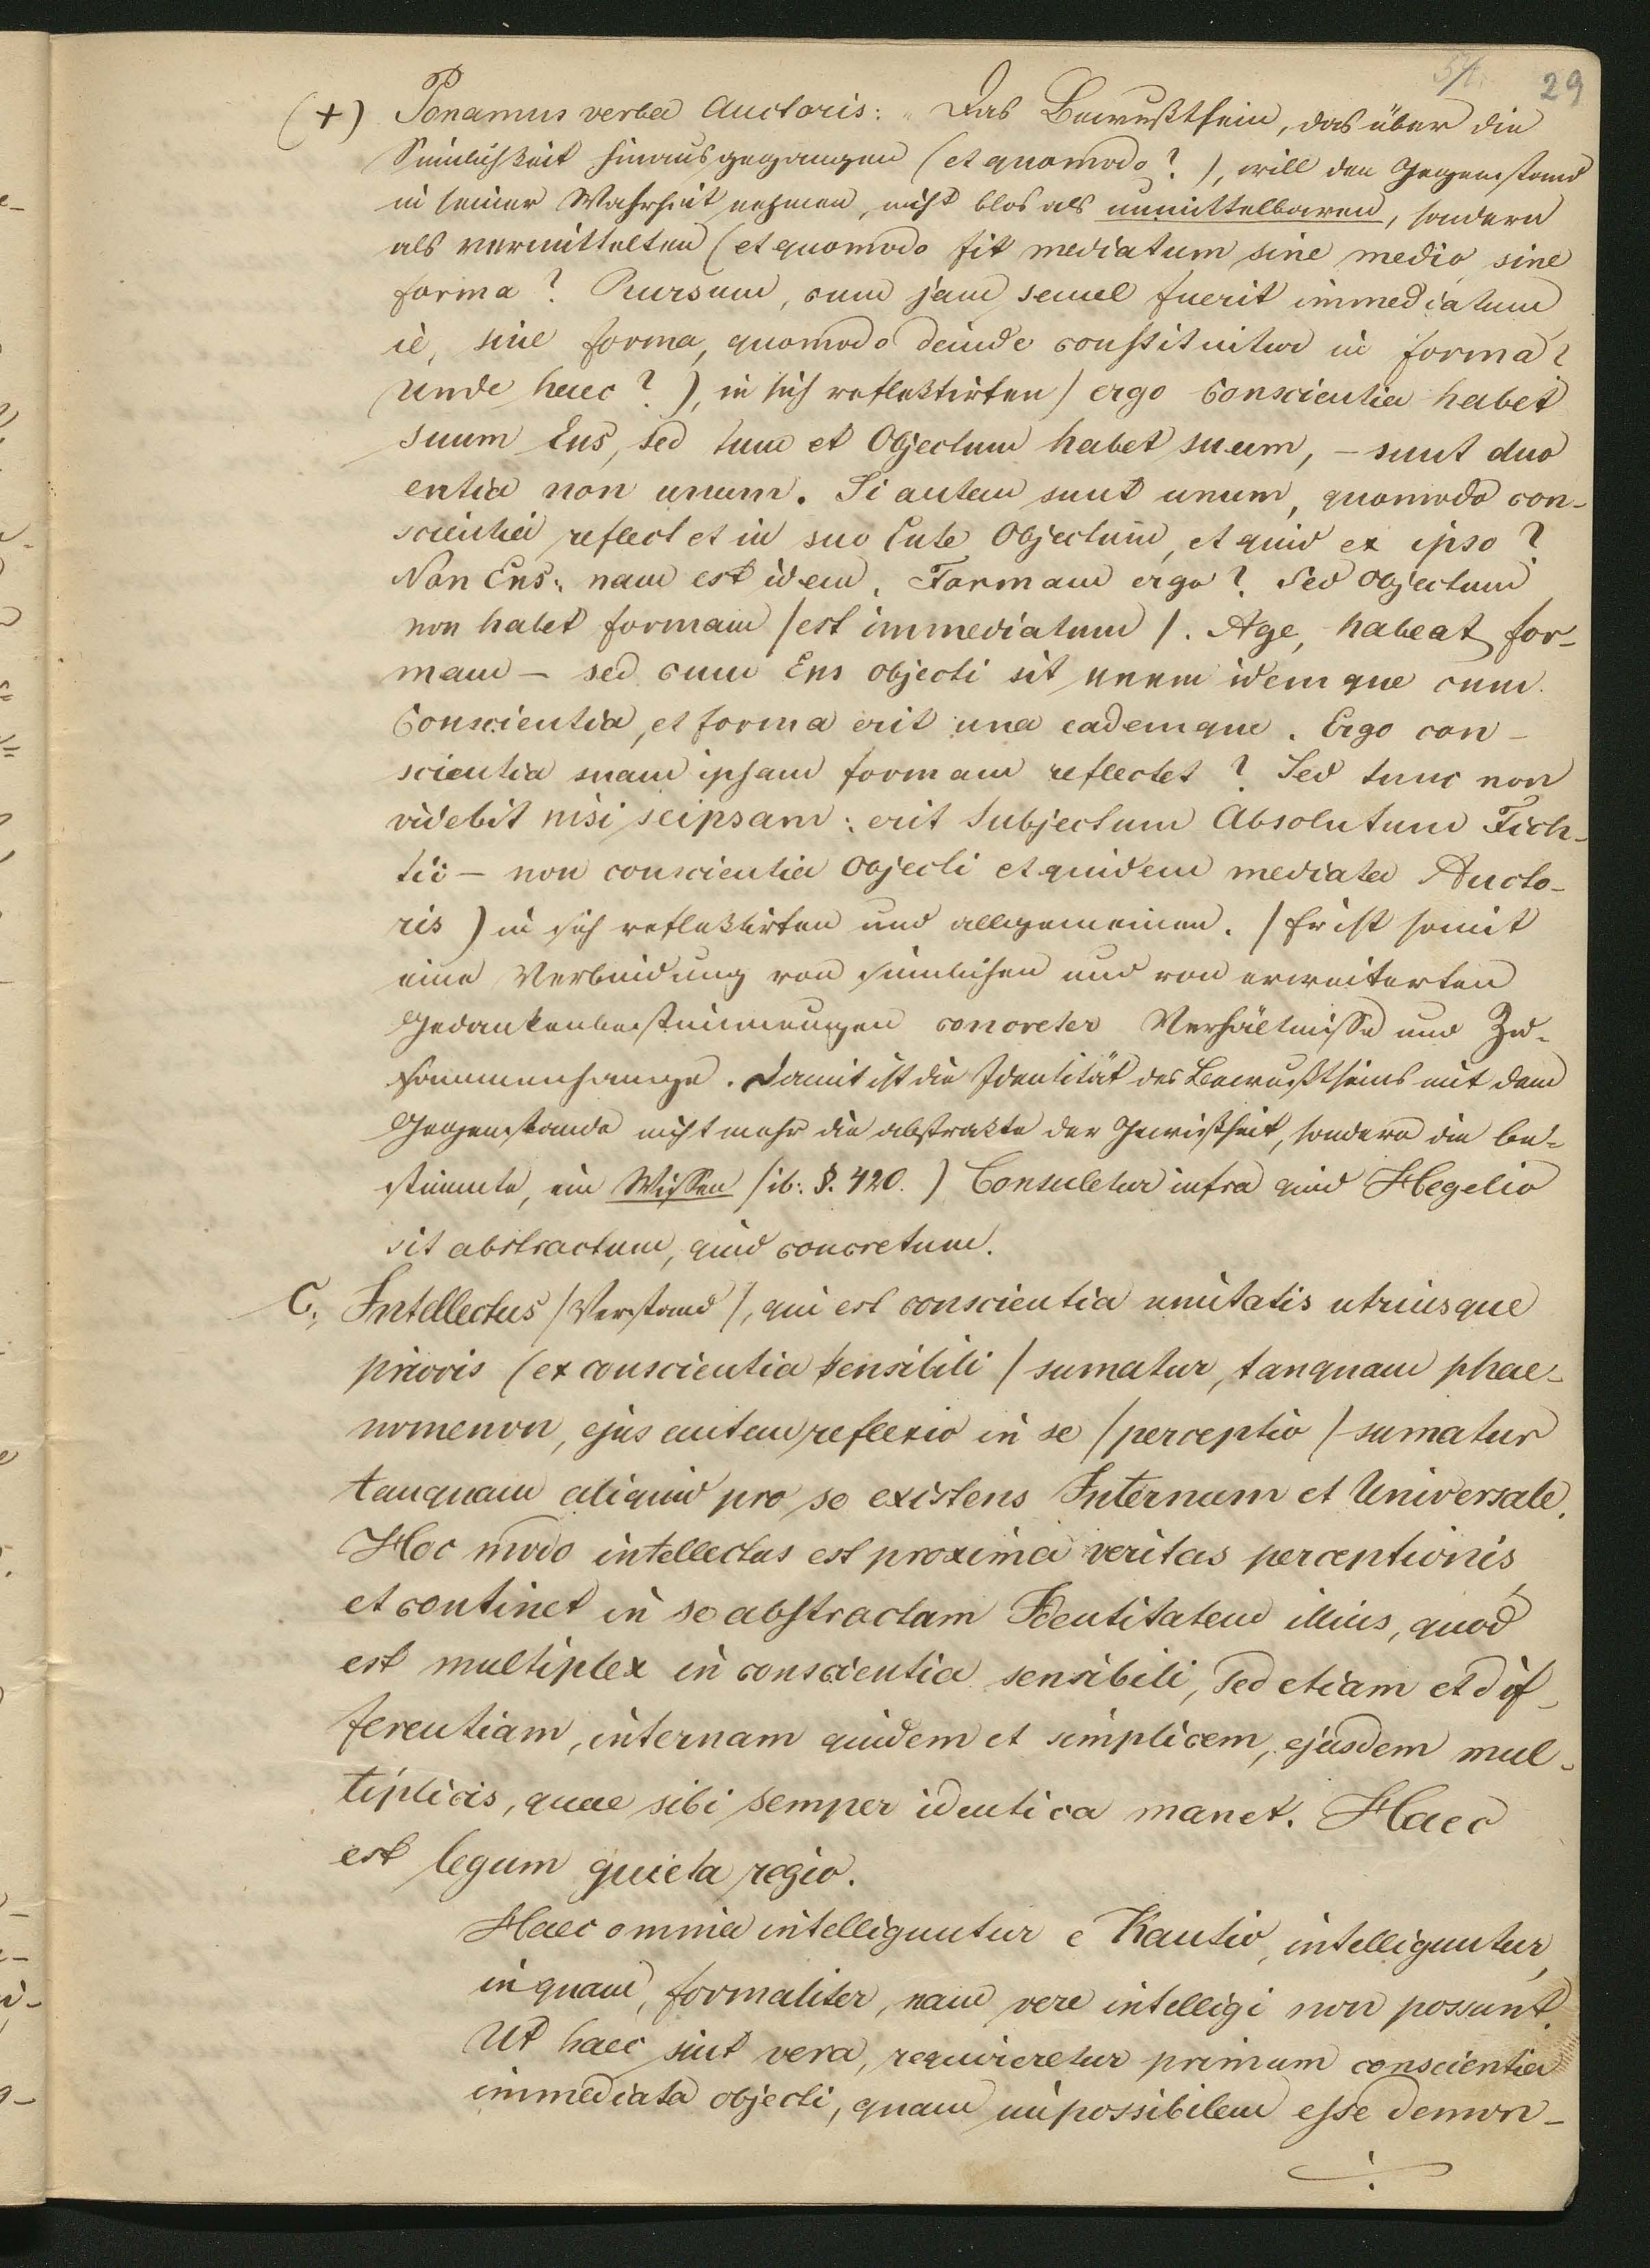 57. 29
(+) Ponamus verba Auctoris: „Das Bewußtsein, das über die
Sinnlichkeit hinausgegangen (et quomodo?), will den Gegenstand
in seiner Wahrheit nehmen, nicht blos als unmittelbaren, sondern
als vermittelten (et quomodo fit mediatum sine medio, sine
forma? Rursum, cum jam semel fuerit immediatum
ie, sine forma, quomodo deinde constituitur in forma?
Unde haec?), in sich reflektirten / ergo Conscientia habet
suum Ens, sed tum et Objectum habet suum, – sunt duo
entia non unum. Si autem sunt unum, quomodo con-
scientia reflectet in suo Ente Objectum, et quid ex ipso?
Non Ens: nam est idem. Formam ergo? Sed Objectum
non habet formam /est immediatum/. Age, habeat for-
mam – sed cum Ens objecti sit unum idemque cum
Conscientia, et forma erit una eademque. Ergo con-
scientia suam ipsam formam reflectet? Sed tunc non
videbit nisi seipsam: erit Subjectum Absolutum Fich-
tii – non conscientia Objecti et quidem mediata Aucto-
ris) in sich reflektirten und allgemeinen. / Er ist somit
eine Verbindung von sinnlichen und von erweiterten
Gedankenbestimmungen concreter Verhältnisse und Zu-
sammenhange. Damit ist die Identität des Bewußtseins mit dem
Gegenstande nicht mehr die abstrakte der Gewißheit, sondern die be-
stimmte, ein Wissen /ib: §. 420.) Consuletur infra quid Hegelio
sit abstractum, quid concretum.
C, Intellectus /Verstand/, qui est conscientia unitatis utriusque
prioris (ex conscientia sensibili / sumatur, tanquam phae-
nomenon, ejus autem reflexio in se /perceptio/ sumatur
tanquam aliquid pro se existens Internum et Universale.
Hoc modo intellectus est proxima veritas perceptionis,
et continet in se abstractam Identitatem illius, quod
est multiplex in conscientia sensibili, sed etiam et dif-
ferentiam, internam quidem et simplicem, ejusdem mul-
tiplicis, quae sibi semper identica manet. Haec
est legum quieta regio.
Haec omnia intelliguntur e Kantio, intelliguntur,
inquam, formaliter, nam vere intelligi non possunt.
Ut haec sint vera, requireretur primum conscientia
immediata objecti, quam impossibilem esse demon-